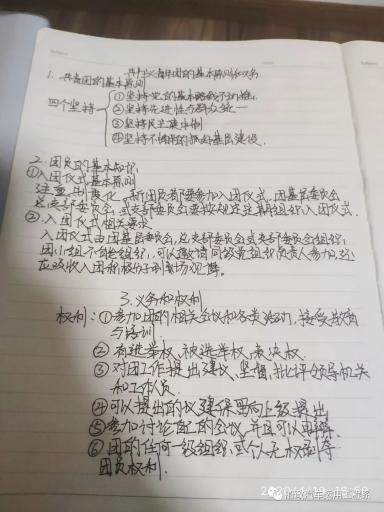 共产主义青年团的基本原则和义务
1. 共青团的基本原则
四个坚持
①坚持党的基本路线不动摇.
②坚持先进性与群众统一
③坚持民主集中制
④坚持不懈的抓好基层建设.
2. 团员的基本知识:
①入团仪式基本原则
注重制度化,新团员都要参加入团仪式,团基层委员会
总支部委员会,或支部委员会要按规定定期组织入团仪式.
②入团仪式相关要求
入团仪式由团基层委员会,总支部委员会或支部委员会组织,
团小组不能组织,可以邀请同级党组织负责人参加,还
应吸收入团积极分子到场观摩。
3. 义务和权利
权利:①参加团的相关会议和各类活动,接受教育
与培训.
②有选举权,被选举权,表决权.
③对团工作提出建议、监督,批评领导机关
和工作员.
④可以提出的议建保留向上级提出
⑤参加讨论自己的会议,并且可以申辩.
⑥团的任何一级组织,或个人无权剥夺
团员权利.
2020/4/19 18:50